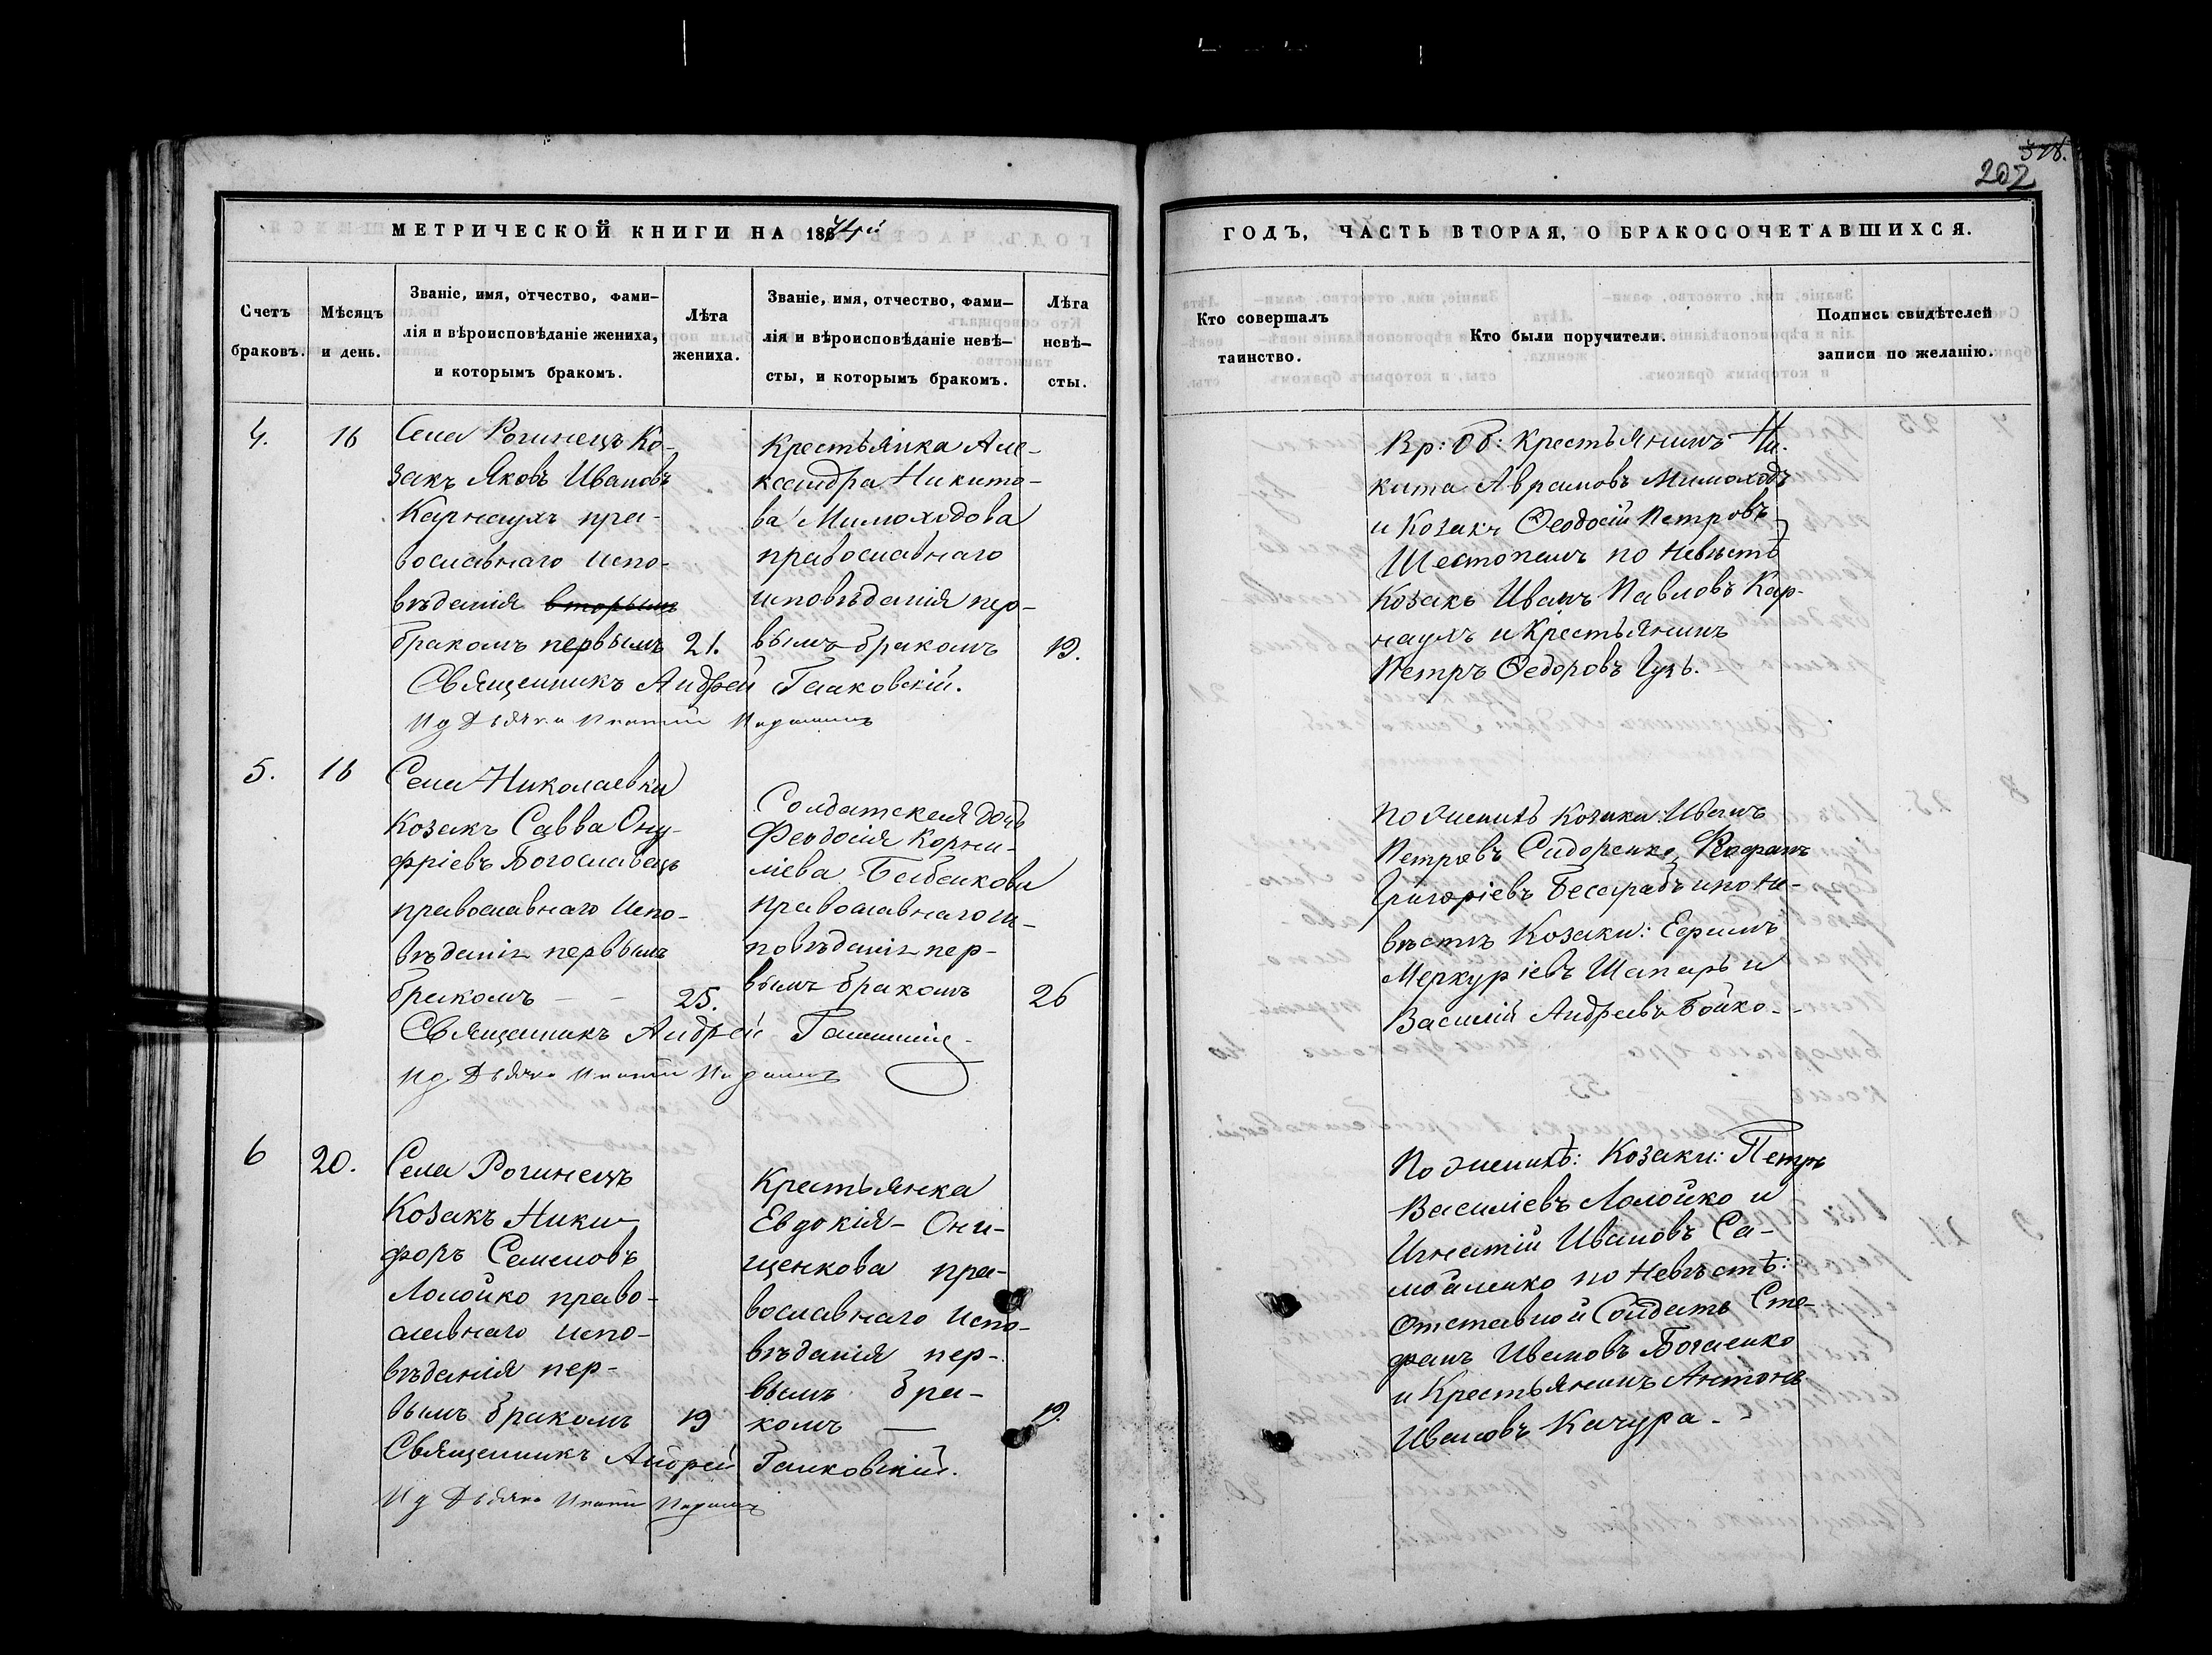 378.
202
МЕТРИЧЕСКОЙ КНИГИ НА 1874й
ГОДЪ, ЧАСТЬ ВТОРАЯ, О БРАКОСОЧЕТАВШИХСЯ.
Счетъ
браковъ.
Мѣсяцъ
и день.
Званіе, имя, отчество, фами-
лія и вѣроисповѣданіе жениха,
и которымъ бракомъ.
Лѣта
жениха.
Званіе, имя, отчество, фами-
лія и вѣроисповѣданіе невѣ-
сты, и которымъ бракомъ.
Лѣта
невѣ-
сты.
Кто совершалъ
таинство.
Кто были поручители.
Подпись свидѣтелей
записи по желанію.
4.
16
Села Рогинецъ Ко-
закъ Яковъ Ивановъ
Карнаухъ пра-
вославнаго испо-
вѣданія вторымъ
бракомъ первымъ
21.
Крестьянка Але-
ксандра Никито-
ва Мимоходова
православнаго
исповѣданія пер-
вымъ бракомъ
19.
Священникъ Андрей Галковскій.
Ид Дьячка
Кр: Об: Крестьянинъ Ни-
кита Аврамовъ Мимоходъ
и Козакъ Ѳеодосій Петровъ
Шестопалъ по Невѣстѣ
Козакъ Иванъ Павловъ Кар-
наухъ и Крестьянинъ
Петръ Ѳедоровъ Гузь.
5.
16
Села Николаевки
Козакъ Савва Ону-
фріевъ Богославецъ
православнаго Испо-
вѣданія первымъ
бракомъ - -
25.
Солдатская дочь
Феодосія Корни-
ліева Бабакова
Православнаго и-
повѣданія пер-
вымъ бракомъ
26
Священникъ Андрей
Ид. Дьячка
По женихѣ Козаки: Иванъ
Петровъ Сидоренко, Ѳеофанъ
Григоріевъ Бесарабъ и по Не-
вѣстѣ Козаки: Ефимъ
Меркуріевъ Шапаръ и
Василій Андреевъ Бойко. -
6
20.
Села Рогинецъ
Козакъ Ники-
форъ Семеновъ
Лолойко право-
славнаго испо-
вѣданія пер-
вымъ бракомъ
19
Крестьянка
Евдокія - Они-
щенкова пра-
вославнаго испо-
вѣданія пер-
вымъ бра-
комъ —
19.
Священникъ Андрей Галковскій.
Ид Дьячка
По женихѣ: Козаки: Петръ
Василіевъ Лолойко и
Игнатій Ивановъ Са-
мойленко по Невѣстѣ:
Отставной Солдатъ Сте-
фанъ Ивановъ Богаенко
и Крестьянинъ Антонъ
Ивановъ Качура. -